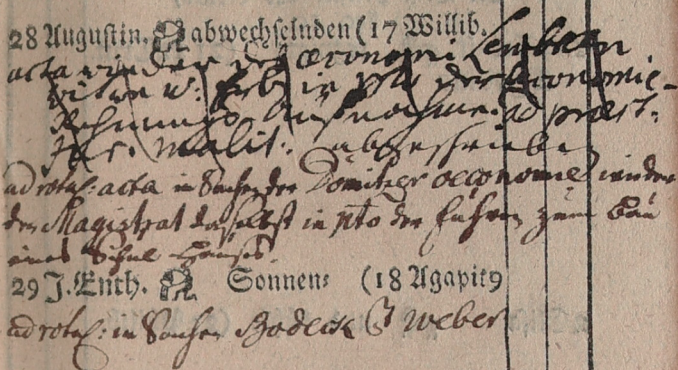 28 Augustin. abwechselnden (17 Willib.
acta wieder des oeconomi
Witwe u: Erb in pto der oeconomie-
Rechnungs Aufnahme. ad praest:
Jur. malit: abgeschrieben
ad rotul: acta in Sachen der Domitzer oeconomie wieder
den Magistrat daselbst in pto der Fuhren zum Bau
eines Schul Hauses.
29 J. Enth. Sonnen- (18 Agapitꝰ
ad rotul: in Sachen Bodeck Weber